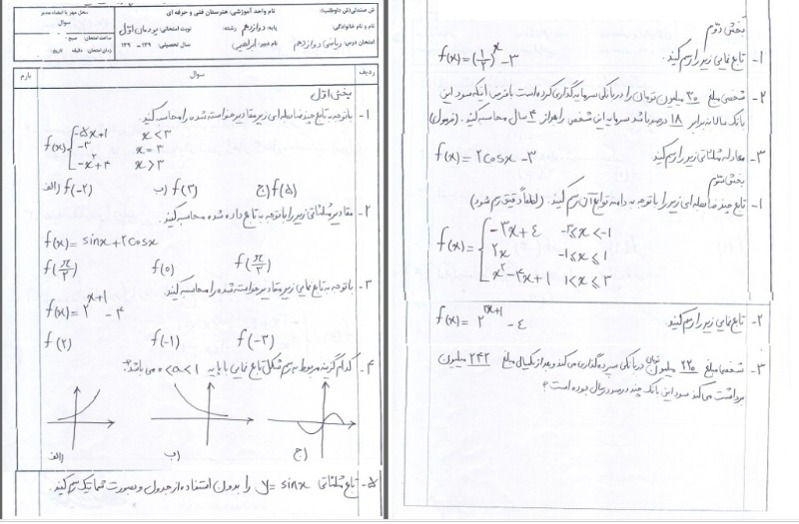 ش صندلی (ش داوطلب):
نام و نام خانوادگی:
نام واحد آموزشی: هنرستان فنی و حرفه ای
پایه: دوازدهم رشته:
نوبت امتحانی: پودمان اول
امتحان درس: ریاضی دوازدهم
نام دبیر: ابراهیمی
سال تحصیلی:
ساعت امتحان: صبح
وقت امتحان: دقیقه
تاریخ:
ردیف سوال بارم
بخش اول
۱- باتوجه به تابع چند ضابطه ای زیر مقادیر خواسته شده را محاسبه کنید.
f(x) = { -۵x+۱ x<۳
-۳ x=۳
-x²+۴ x>۳
الف) f(-۲) ب) f(۳) ج) f(۵)
۲- مقادیر مثلثاتی زیر را باتوجه به تابع داده شده محاسبه کنید.
f(x)= sinx+۲cosx
f(π/۲) f(۰) f(π/۳)
۳- باتوجه به تابع نمایی زیر مقادیر خواسته شده را محاسبه کنید.
f(x)= ۲^(x+۱) -۴
f(۲) f(-۱) f(-۳)
۴- کدام گزینه مربوط به رسم شکل تابع نمایی با پایه ۰<a<۱ می باشد؟
الف) ب) ج)
۵- تابع مثلثاتی y= sinx را بدون استفاده از جدول و بصورت شماتیک رسم کنید.
بخش دوم
۱- تابع نمایی زیر را رسم کنید. f(x)=(۱/۲)^x -۳
۲- شخصی مبلغ ۳۰ میلیون تومان را در بانکی سرمایه گذاری کرده است با فرض اینکه سود این
بانک سالانه برابر ۱۸ درصد باشد سرمایه این شخص را بعد از ۴ سال محاسبه کنید. (فرمول)
۳- معادله مثلثاتی زیر را رسم کنید f(x)= ۲cosx -۳
بخش سوم
۱- تابع چند ضابطه ای زیر را باتوجه به دامنه توابع آن رسم کنید. (لطفاً دقیق رسم شود)
f(x)= { -۳x+٤ -۲≤x<-۱
۲x -۱≤x≤۱
x²-۴x+۱ ۱<x≤۳
۲- تابع نمایی زیر را رسم کنید. f(x)= ۲^(۲x+۱) -٤
۳- شخصی مبلغ ۲۲۰ میلیون تومان در بانکی سپرده گذاری می کند و بعد از یکسال مبلغ ۲۴۲ میلیون
برداشت می کند سود این بانک چند درصد در سال بوده است؟